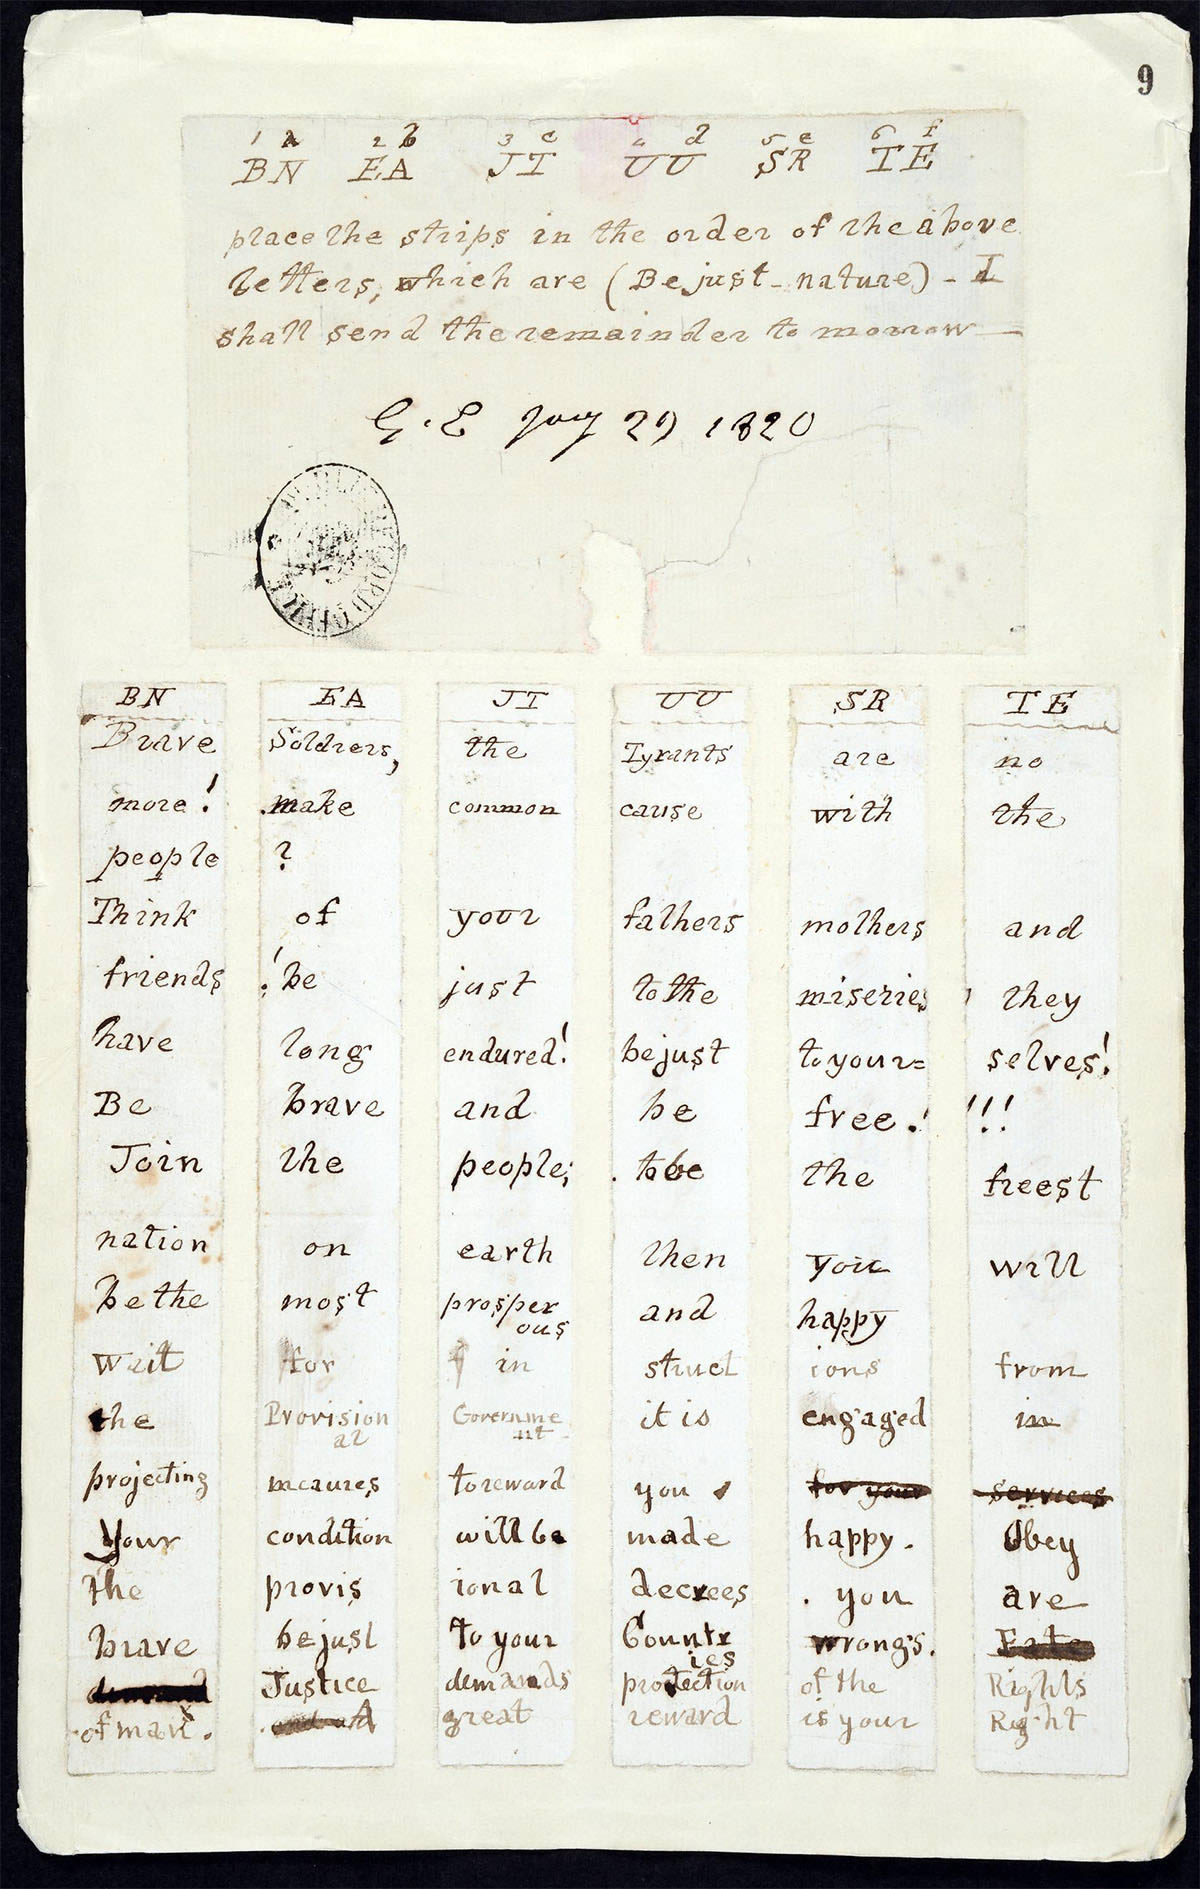 9
1 a 2 b 3 c 4 d 5 e 6 f
BN EA JT UU SR TE
place the strips in the order of the above
letters, which are (Be just - nature) - I
shall send the remainder to morrow
G. E Jay 29 1820
BN EA JT UU SR TE
Brave Soldiers, the Tyrants are no
more! make common cause with the
people ?
Think of your fathers mothers and
friends ! be just to the miseries they
have long endured! be just to your= selves!
Be brave and be free.! !!!
Join the people; to be the freest
nation on earth then you will
be the most prosper ous and happy
Wait for in struct ions from
the Provision al Governme nt it is engaged in
projecting meaures to reward you for your services
Your condition will be made happy. Obey
the provis ional decrees . you are
brave be just to your Countr ies wrongs. Fate
demand Justice demands protection of the Rights
of man. great reward is your Right